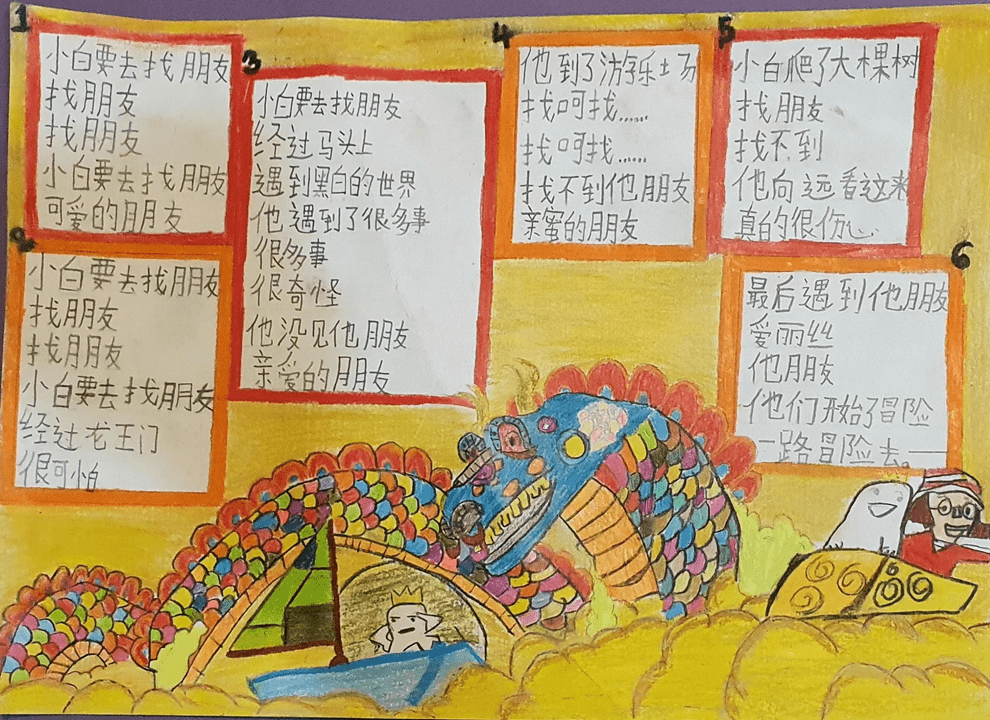 1
小白要去找朋友
找朋友
找朋友
小白要去找朋友
可爱的朋友
2
小白要去找朋友
找朋友
找朋友
小白要去找朋友
经过龙王门
很可怕
3
小白要去找朋友
经过马头上
遇到黑白的世界
他遇到了很多事
很多事
很奇怪
他没见他朋友
亲爱的朋友
4
他到了游乐场
找呵找……
找呵找……
找不到他朋友
亲蜜的朋友
5
小白爬了大棵树
找朋友
找不到
他向远看这来
真的很伤心
6
最后遇到他朋友
爱丽丝
他朋友
他们开始了冒险
一路冒险去。—